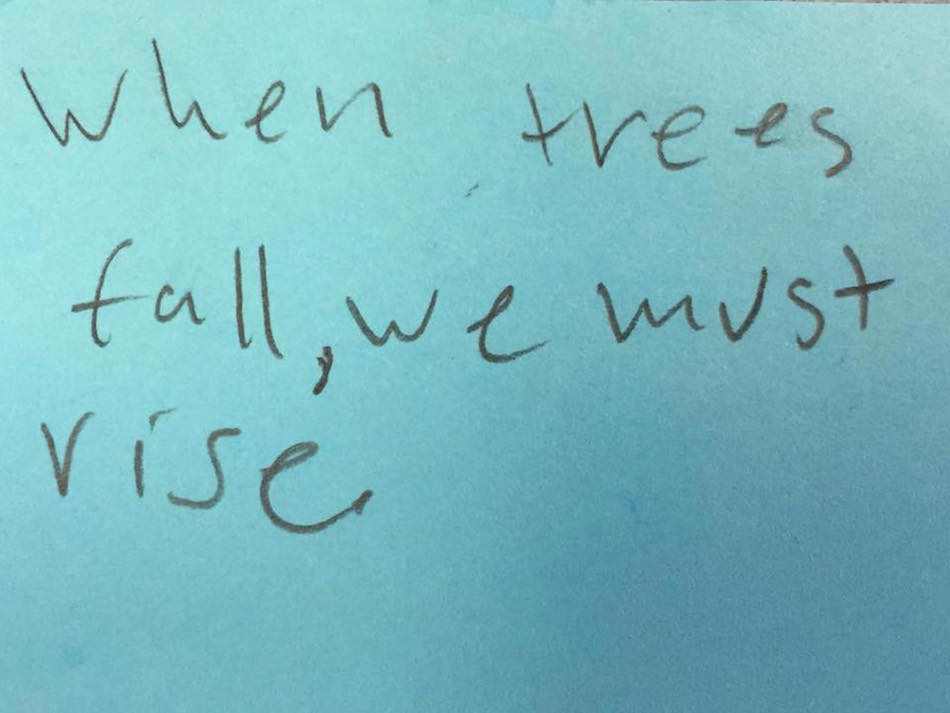 When trees
fall, we must
rise.